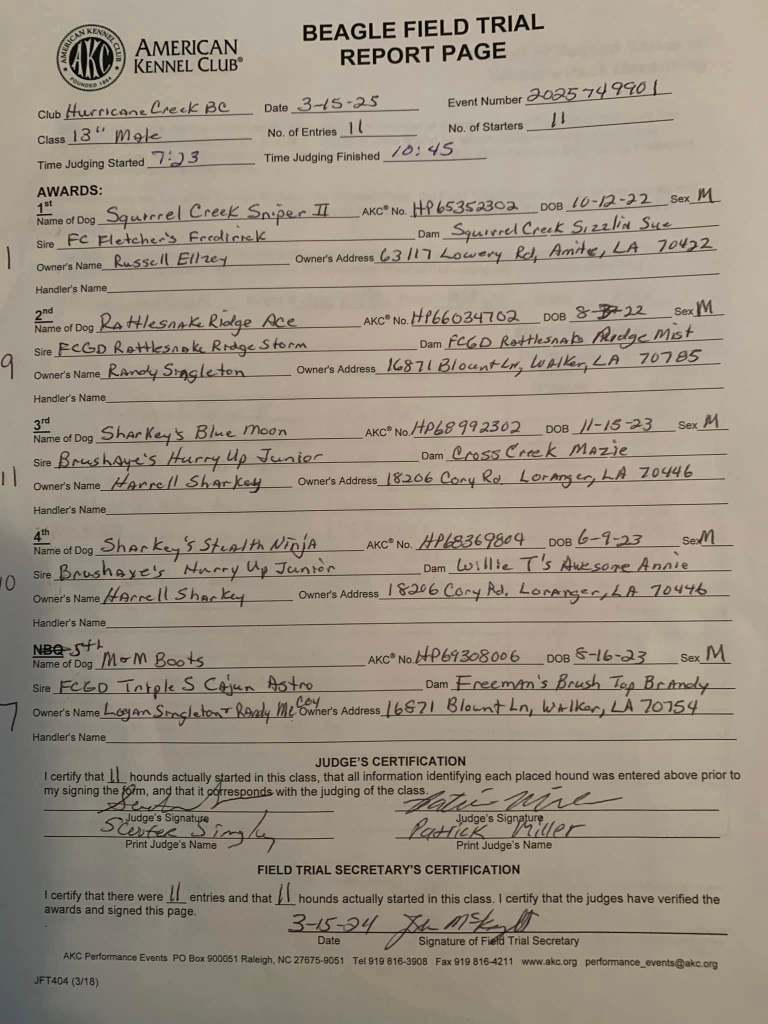 AMERICAN KENNEL CLUB
AKC
FOUNDED 1884
AMERICAN
KENNEL CLUB®
BEAGLE FIELD TRIAL
REPORT PAGE
Club Hurricane Creek BC Date 3-15-25 Event Number 2025749901
Class 13" Male No. of Entries 11 No. of Starters 11
Time Judging Started 7:23 Time Judging Finished 10:45
AWARDS:
1st
Name of Dog Squirrel Creek Sniper II AKC® No. HP65352302 DOB 10-12-22 Sex M
Sire FC Fletcher's Fredirick Dam Squirrel Creek Sizzlin Sue
1 Owner's Name Russell Ellzey Owner's Address 63117 Lowery Rd, Amite, LA 70422
Handler's Name
2nd
Name of Dog Rattlesnake Ridge Ace AKC® No. HP66034702 DOB 8-3-22 Sex M
Sire FCGD Rattlesnake Ridge Storm Dam FCGD Rattlesnake Ridge Mist
9 Owner's Name Randy Singleton Owner's Address 16871 Blount Ln, Walker, LA 70785
Handler's Name
3rd
Name of Dog Sharkey's Blue Moon AKC® No. HP68992302 DOB 11-15-23 Sex M
Sire Brushaye's Hurry Up Junior Dam Cross Creek Mazie
11 Owner's Name Harrell Sharkey Owner's Address 18206 Cory Rd Loranger, LA 70446
Handler's Name
4th
Name of Dog Sharkey's Stealth Ninja AKC® No. HP68369804 DOB 6-9-23 Sex M
Sire Brushaye's Hurry Up Junior Dam Willie T's Awesome Annie
10 Owner's Name Harrell Sharkey Owner's Address 18206 Cory Rd. Loranger, LA 70446
Handler's Name
NBQ 5th
Name of Dog M&M Boots AKC® No. HP69308006 DOB 8-16-23 Sex M
Sire FCGD Triple S Cajun Astro Dam Freeman's Brush Top Brandy
7 Owner's Name Logan Singleton + Randy McCoy Owner's Address 16871 Blount Ln, Walker, LA 70754
Handler's Name
JUDGE'S CERTIFICATION
I certify that 11 hounds actually started in this class, that all information identifying each placed hound was entered above prior to
my signing the form, and that it corresponds with the judging of the class.
Judge's Signature Judge's Signature
Patrick Miller
Print Judge's Name Print Judge's Name
FIELD TRIAL SECRETARY'S CERTIFICATION
I certify that there were 11 entries and that 11 hounds actually started in this class. I certify that the judges have verified the
awards and signed this page.
3-15-24
Date Signature of Field Trial Secretary
AKC Performance Events PO Box 900051 Raleigh, NC 27675-9051 Tel 919 816-3908 Fax 919 816-4211 www.akc.org performance_events@akc.org
JFT404 (3/18)